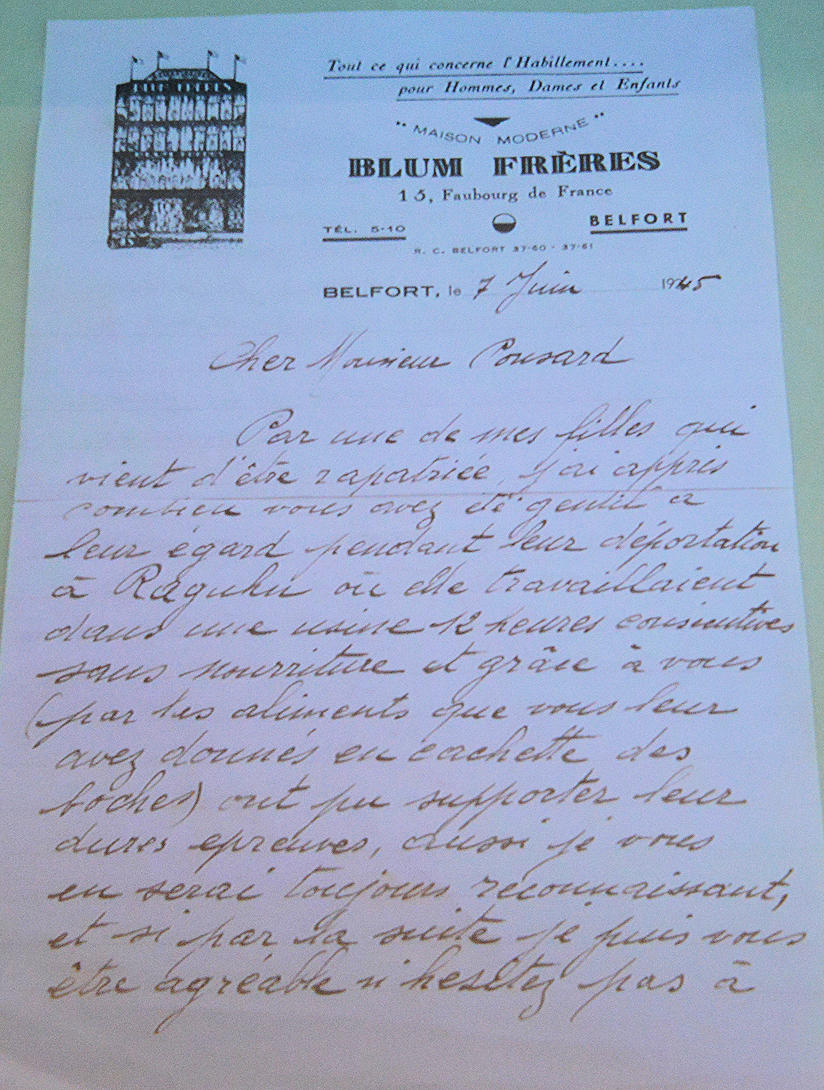 Tout ce qui concerne l'Habillement....
pour Hommes, Dames et Enfants
" MAISON MODERNE "
BLUM FRÈRES
15, Faubourg de France
TÉL. 5-10
BELFORT
R. C. BELFORT 37-60 - 37-61
BELFORT, le 7 Juin 1945
Cher Monsieur Ponsard
Par une de mes filles qui
vient d'être rapatriée, j'ai appris
combien vous avez été gentil à
leur égard pendant leur déportation
à Raguhn où elle travaillaient
dans une usine 12 heures consecutives
sans nourriture et grâce à vous
(par les aliments que vous leur
avez donnés en cachette des
boches) ont pu supporter leur
dures epreuves, aussi je vous
en serai toujours reconnaissant,
et si par la suite je puis vous
être agréable n'hesitez pas à